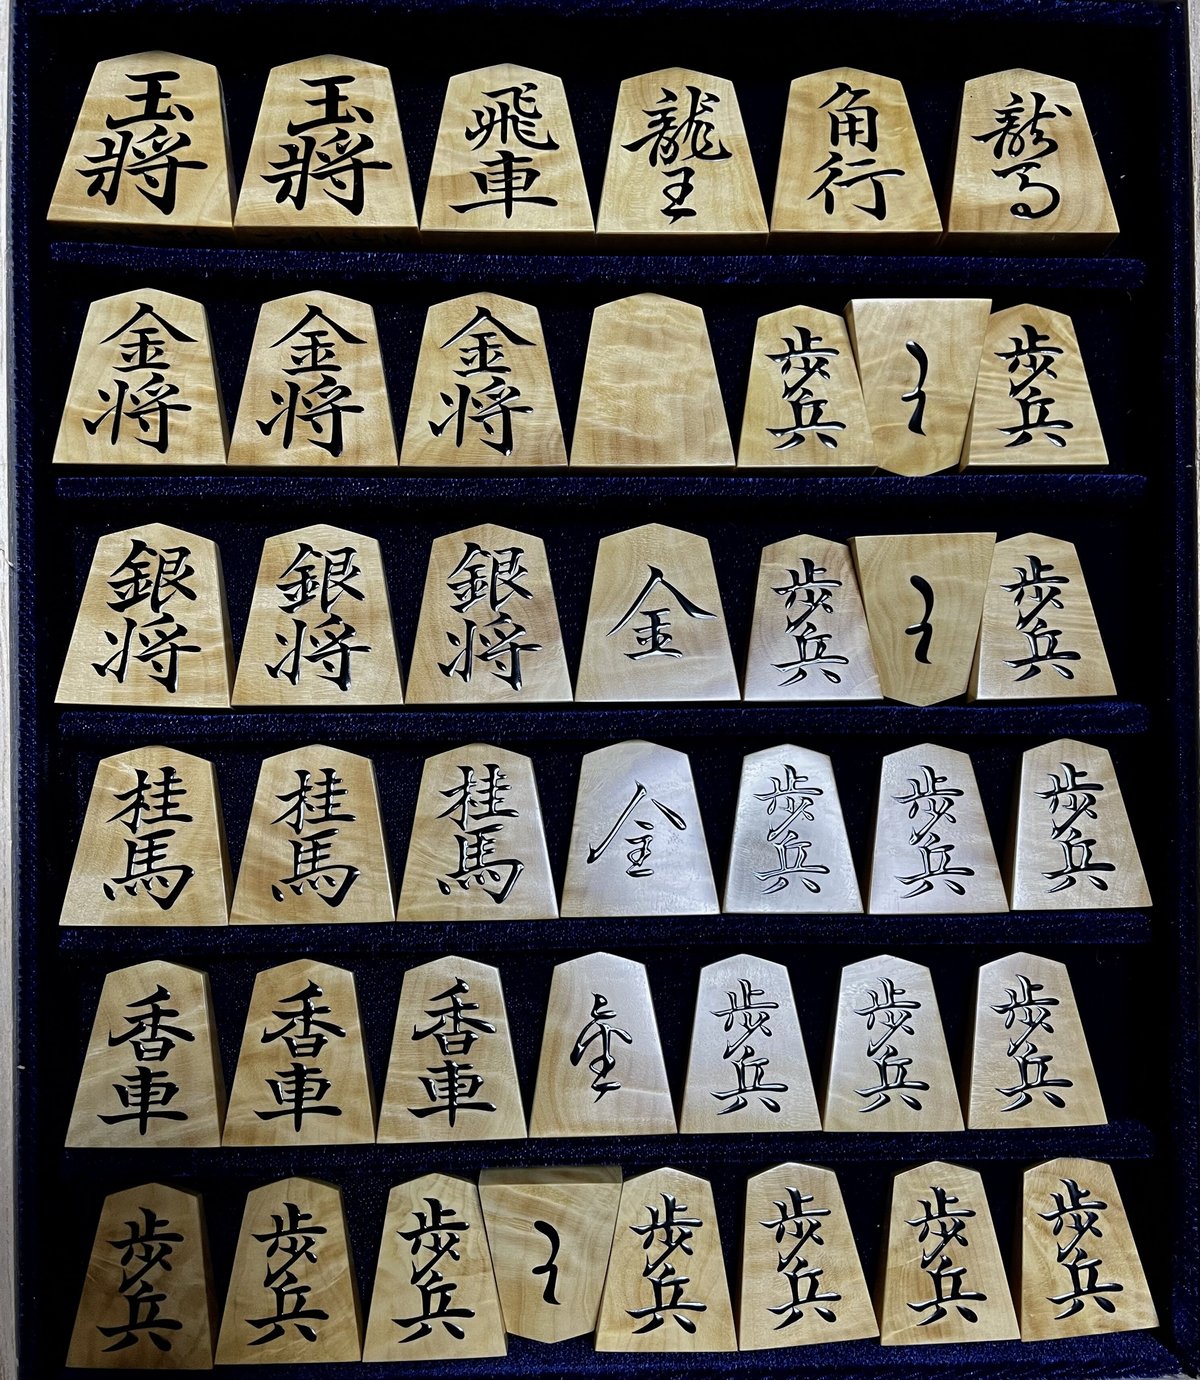 玉將 玉將 飛車 龍王 角行 龍馬
金将 金将 金将 歩兵 と 歩兵
銀将 銀将 銀将 金 歩兵 と 歩兵
桂馬 桂馬 桂馬 全 歩兵 歩兵 歩兵
香車 香車 香車 歩兵 歩兵 歩兵
歩兵 歩兵 歩兵 と 歩兵 歩兵 歩兵 歩兵